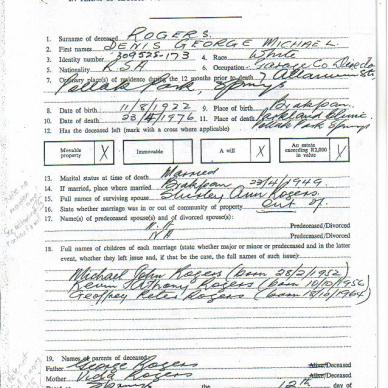 1. Surname of deceased ROGERS.
2. First names DENIS GEORGE MICHAEL.
3. Identity number 309525-173 4. Race White
5. Nationality R.S.A 6. Occupation Garage Co
7. Ordinary place(s) of residence during the 12 months prior to death 7
Pollak Park, Springs
8. Date of birth 11/8/1922 9. Place of birth Brakpan.
10. Date of death 23/4/1976 11. Place of death Parkland Clinic
Pollak Park Springs
12. Has the deceased left (mark with a cross where applicable)
Movable property X Immovable A will X An estate exceeding R3,000 in value X
13. Marital status at time of death Married
14. If married, place where married Brakpan 23/4/1949.
15. Full names of surviving spouse Shirley Ann Rogers.
16. State whether marriage was in or out of community of property Out of.
17. Name(s) of predeceased spouse(s) and of divorced spouse(s):
N.A Predeceased/Divorced
N A Predeceased/Divorced
18. Full names of children of each marriage (state whether major or minor or predeceased and in the latter
event, whether they left issue and, if that be the case, the full names of such issue):
Michael John Rogers (born 28/2/1952)
Kevin Anthony Rogers (born 10/10/1956)
Geoffrey Peter Rogers (born 10/10/1964)
19. Names of parents of deceased
Father George Rogers Alive/Deceased
Mother Vida Rogers Alive/Deceased
the 12th day of